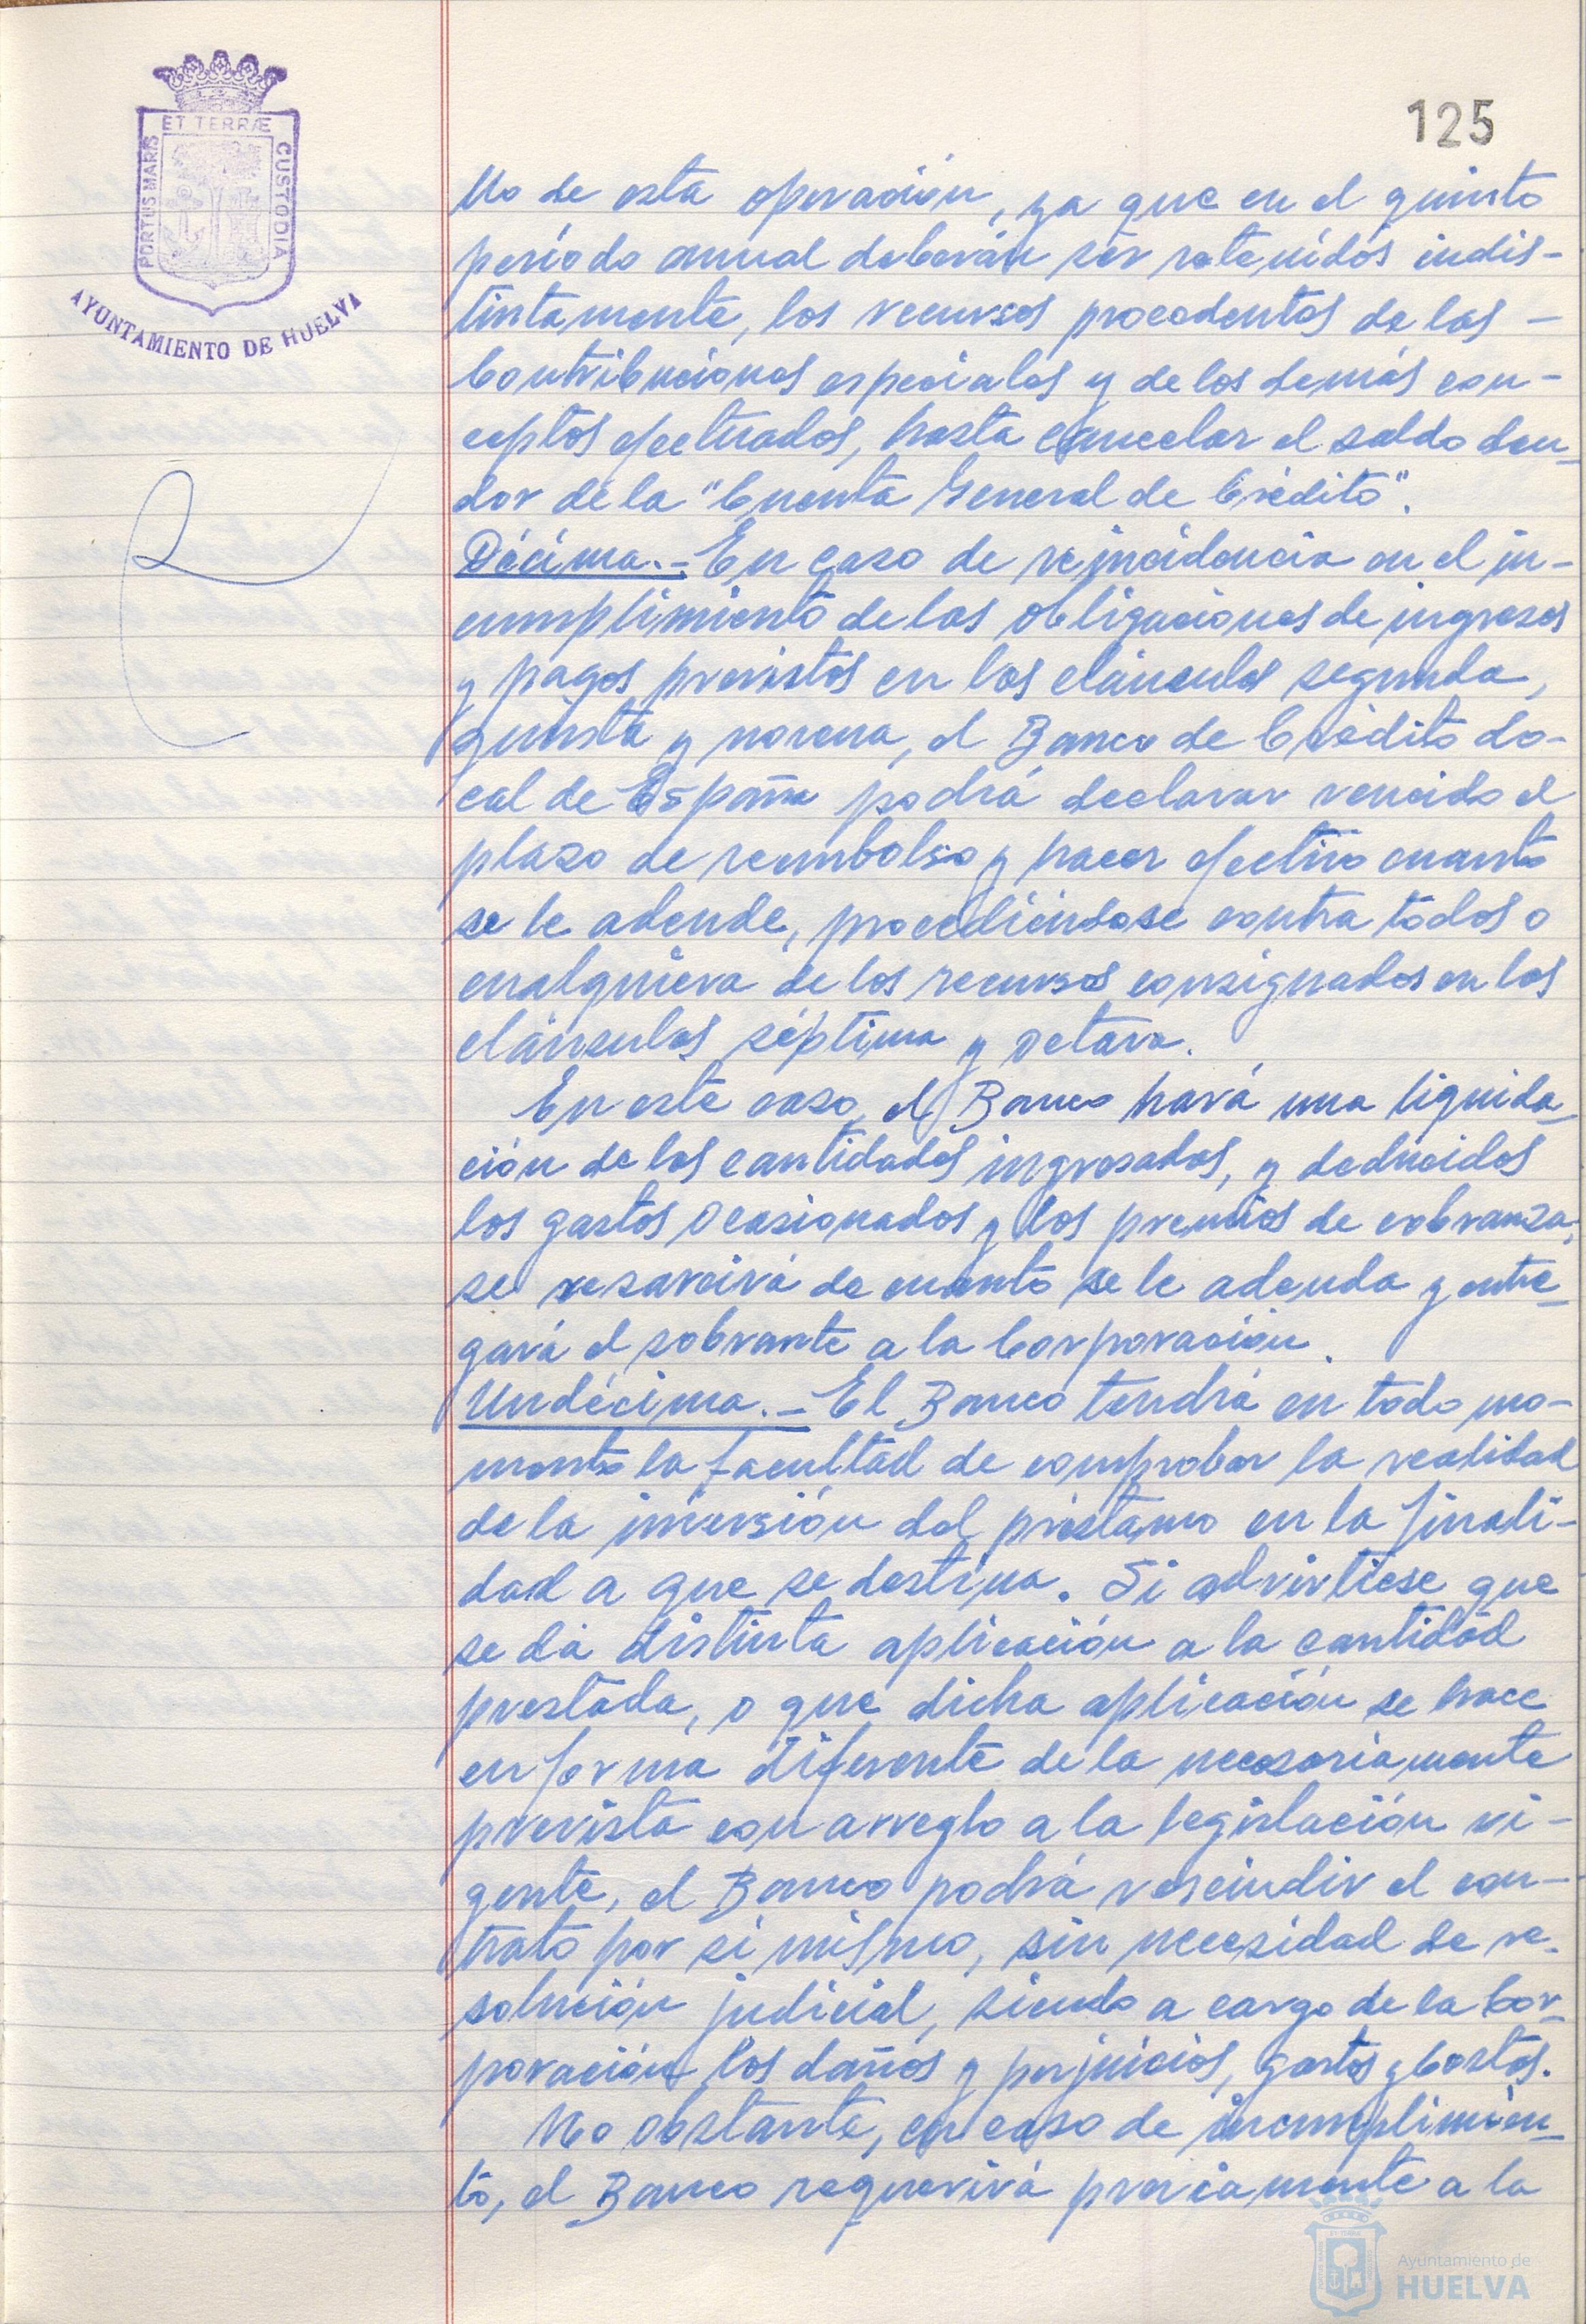 PORTUS MARIS ET TERRÆ CUSTODIA
AYUNTAMIENTO DE HUELVA
125
llo de esta operación, ya que en el quinto
período anual deberán ser retenidos indis-
tintamente, los recursos procedentes de las -
Contribuciones especiales y de los demás con-
ceptos afectados, hasta cancelar el saldo deu-
dor de la "Cuenta General de Crédito".
Décima.- En caso de reincidencia en el in-
cumplimiento de las obligaciones de ingresos
y pagos previstos en las cláusulas segunda,
quinta y novena, el Banco de Crédito Lo-
cal de España podrá declarar vencido el
plazo de reembolso y hacer efectivo cuanto
se le adeude, procediéndose contra todos o
cualquiera de los recursos consignados en las
cláusulas séptima y octava.
En este caso, el Banco hará una liquida-
ción de las cantidades ingresadas, y deducidos
los gastos ocasionados y los premios de cobranza,
se resarcirá de cuanto se le adeuda y entre-
gará el sobrante a la Corporación.
Undécima.- El Banco tendrá en todo mo-
mento la facultad de comprobar la realidad
de la inversión del préstamo en la finali-
dad a que se destina. Si advirtiese que
se dá distinta aplicación a la cantidad
prestada, o que dicha aplicación se hace
en forma diferente de la necesariamente
prevista con arreglo a la legislación vi-
gente, el Banco podrá rescindir el con-
trato por si mismo, sin necesidad de re-
solución judicial, siendo a cargo de la Cor-
poración los daños y perjuicios, gastos y costas.
No obstante, en caso de incumplimien-
to, el Banco requerirá previamente a la
Ayuntamiento de
HUELVA